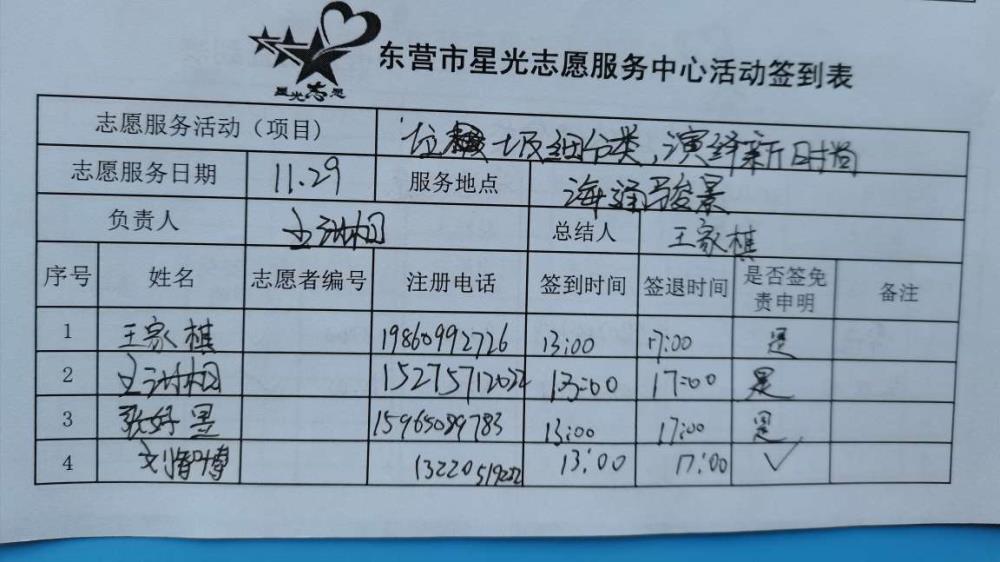 星光志愿
东营市星光志愿服务中心活动签到表
志愿服务活动（项目） 垃圾细分类，演绎新时尚
志愿服务日期 11.29 服务地点 海通骏景
负责人 总结人 王家棋
序号 姓名 志愿者编号 注册电话 签到时间 签退时间 是否签免责申明 备注
1 王家棋 19860992726 13:00 17:00 是
2 13:00 17:00 是
3 15965089783 13:00 17:00 是
4 13:00 17:00 ✓